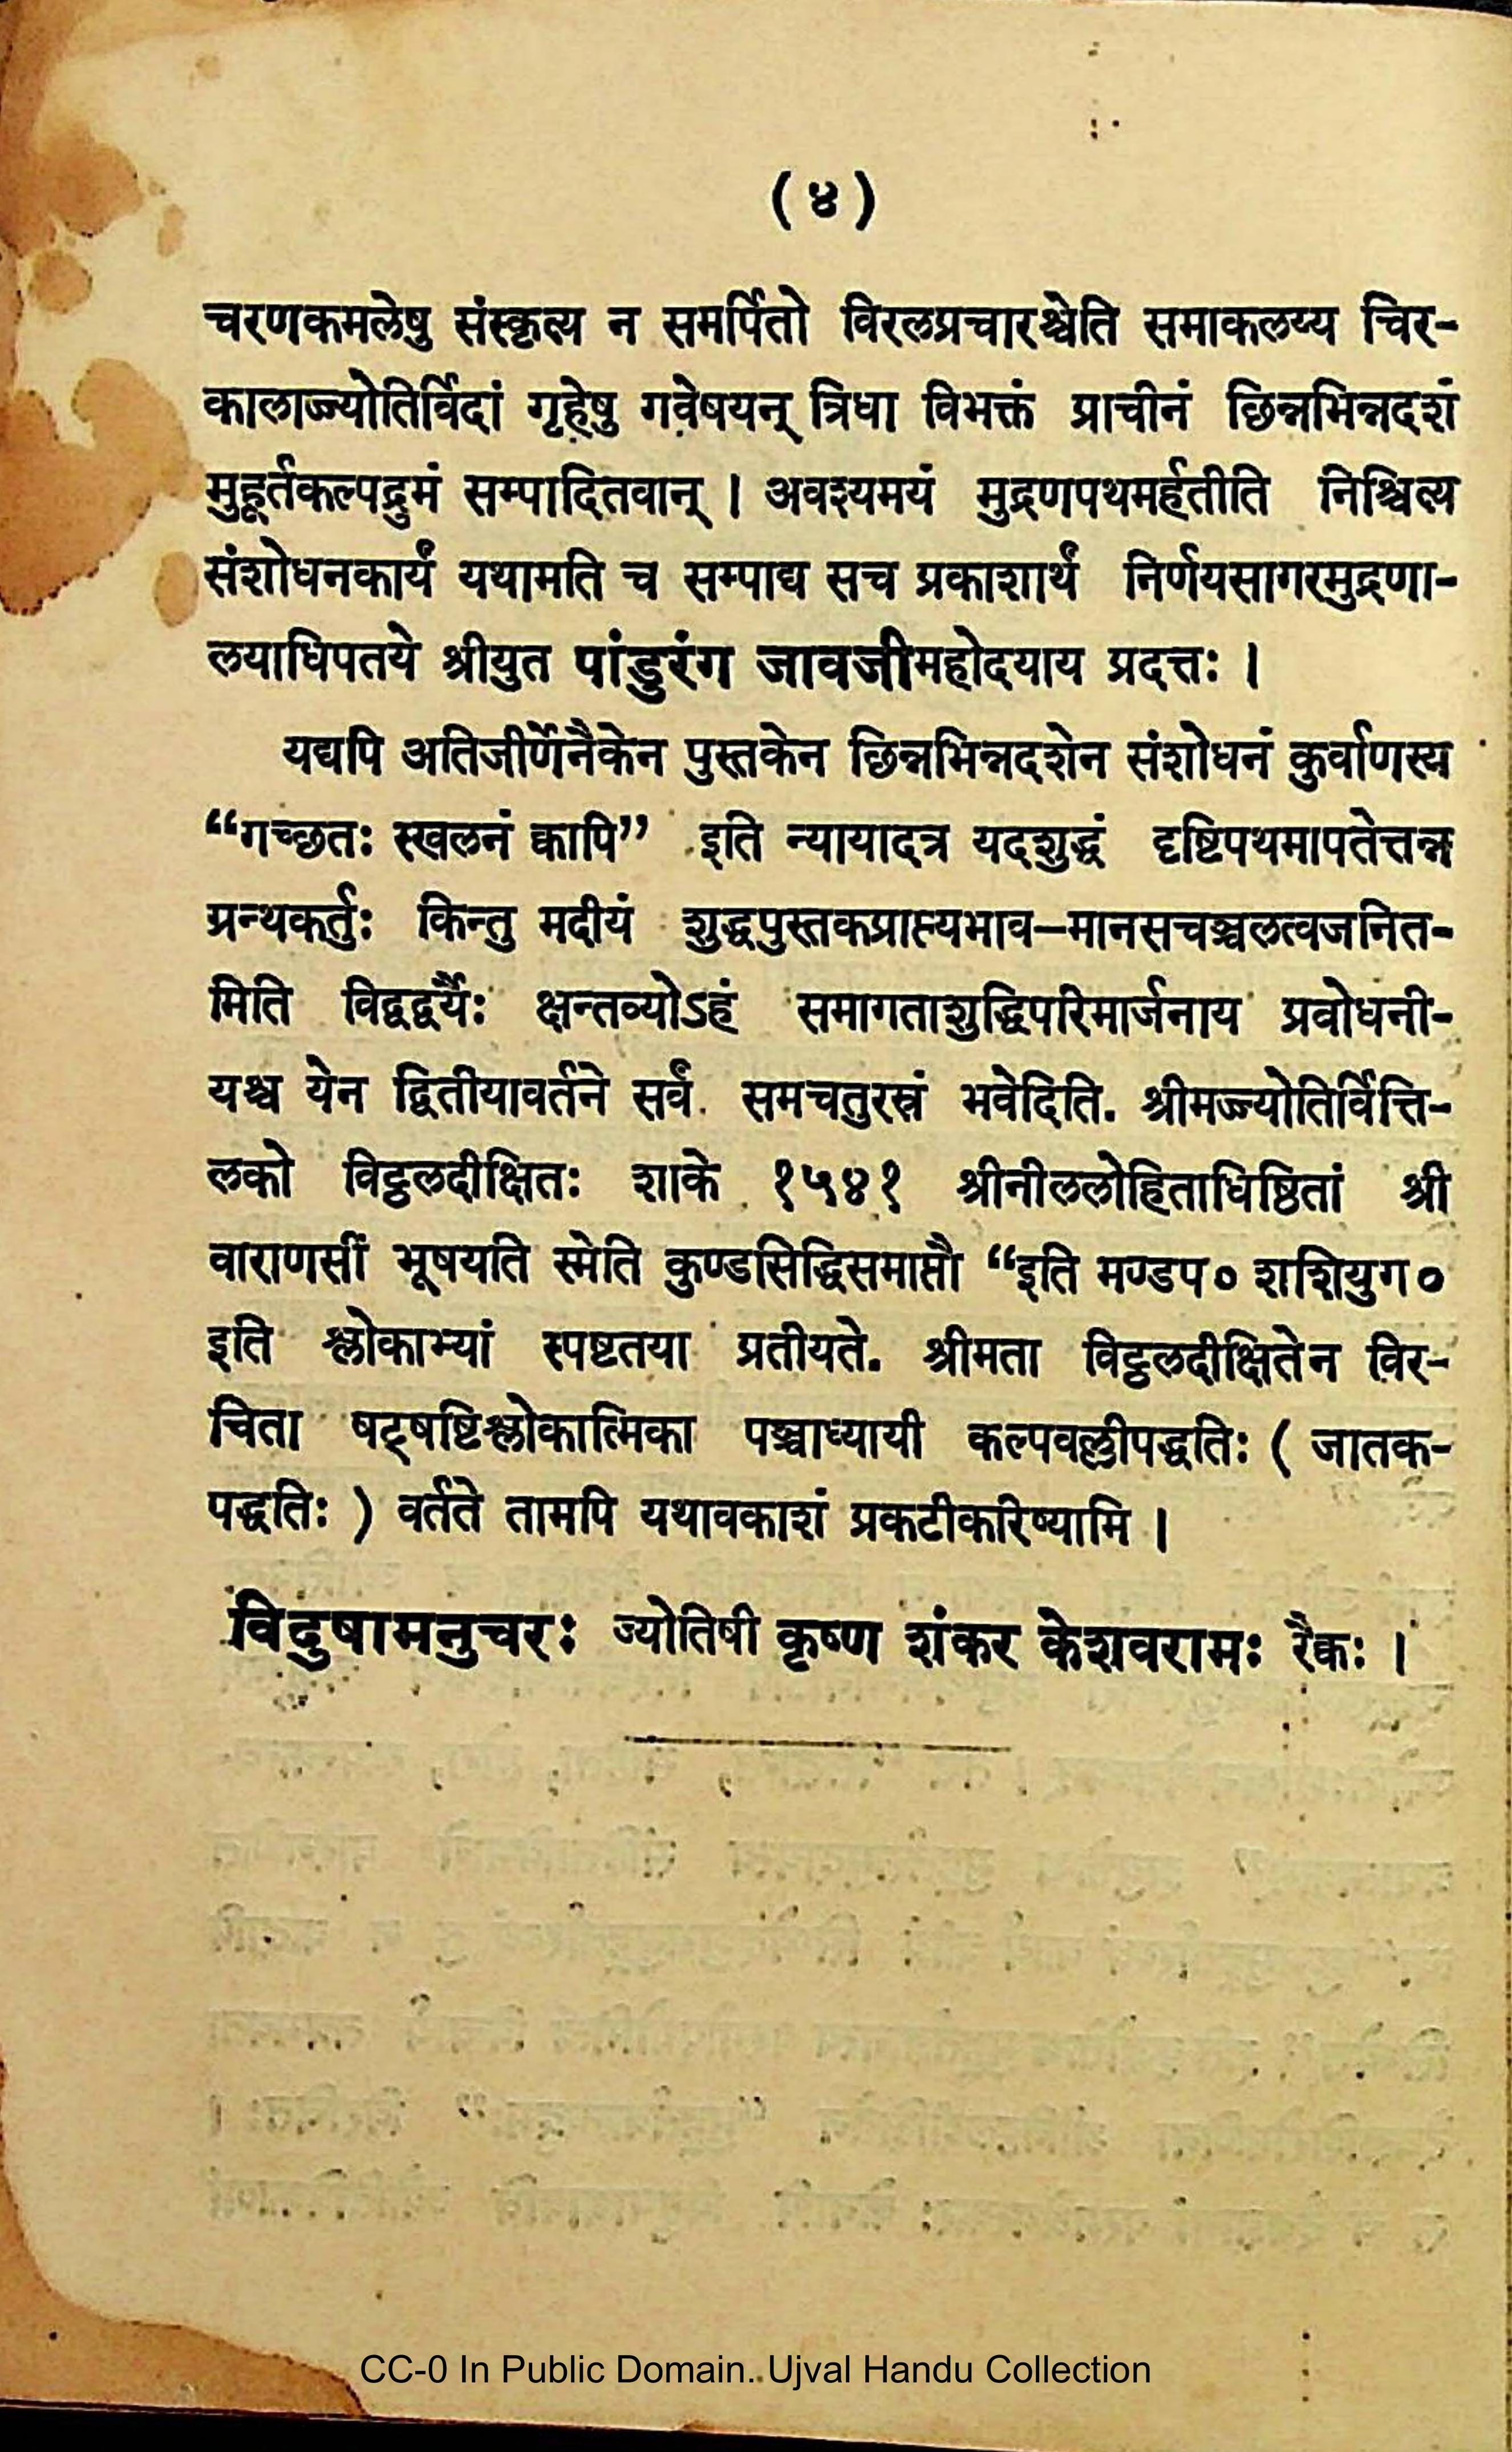 ( ४ )
चरणकमलेषु संस्कृत्य न समर्पितो विरलप्रचारश्चेति समाकलय्य चिर-
कालाज्ज्योतिर्विदां गृहेषु गवेषयन् त्रिधा विभक्तं प्राचीनं छिन्नभिन्नदशं
मुहूर्तकल्पद्रुमं सम्पादितवान् । अवश्यमयं मुद्रणपथमर्हतीति निश्चित्य
संशोधनकार्यं यथामति च सम्पाद्य सच प्रकाशार्थं निर्णयसागरमुद्रणा-
लयाधिपतये श्रीयुत पांडुरंग जावजीमहोदयाय प्रदत्तः ।
यद्यपि अतिजीर्णेनैकेन पुस्तकेन छिन्नभिन्नदशेन संशोधनं कुर्वाणस्य
“गच्छतः स्खलनं क्वापि” इति न्यायादत्र यदशुद्धं दृष्टिपथमापतेत्तन्न
ग्रन्थकर्तुः किन्तु मदीयं शुद्धपुस्तकप्राप्त्यभाव–मानसचञ्चलत्वजनित-
मिति विद्वद्वर्यैः क्षन्तव्योऽहं समागताशुद्धिपरिमार्जनाय प्रवोधनी-
यश्च येन द्वितीयावर्तने सर्वं समचतुरस्रं भवेदिति. श्रीमज्ज्योतिर्वित्ति-
लको विट्ठलदीक्षितः शाके १५४१ श्रीनीललोहिताधिष्ठितां श्री
वाराणसीं भूषयति स्मेति कुण्डसिद्धिसमाप्तौ “इति मण्डप० शशियुग०
इति श्लोकाभ्यां स्पष्टतया प्रतीयते. श्रीमता विट्ठलदीक्षितेन विर-
चिता षट्षष्टिश्लोकात्मिका पञ्चाध्यायी कल्पवल्लीपद्धतिः ( जातक-
पद्धतिः ) वर्तते तामपि यथावकाशं प्रकटीकरिष्यामि ।
विदुषामनुचरः ज्योतिषी कृष्ण शंकर केशवरामः रैक्वः ।
CC-0 In Public Domain. Ujval Handu Collection